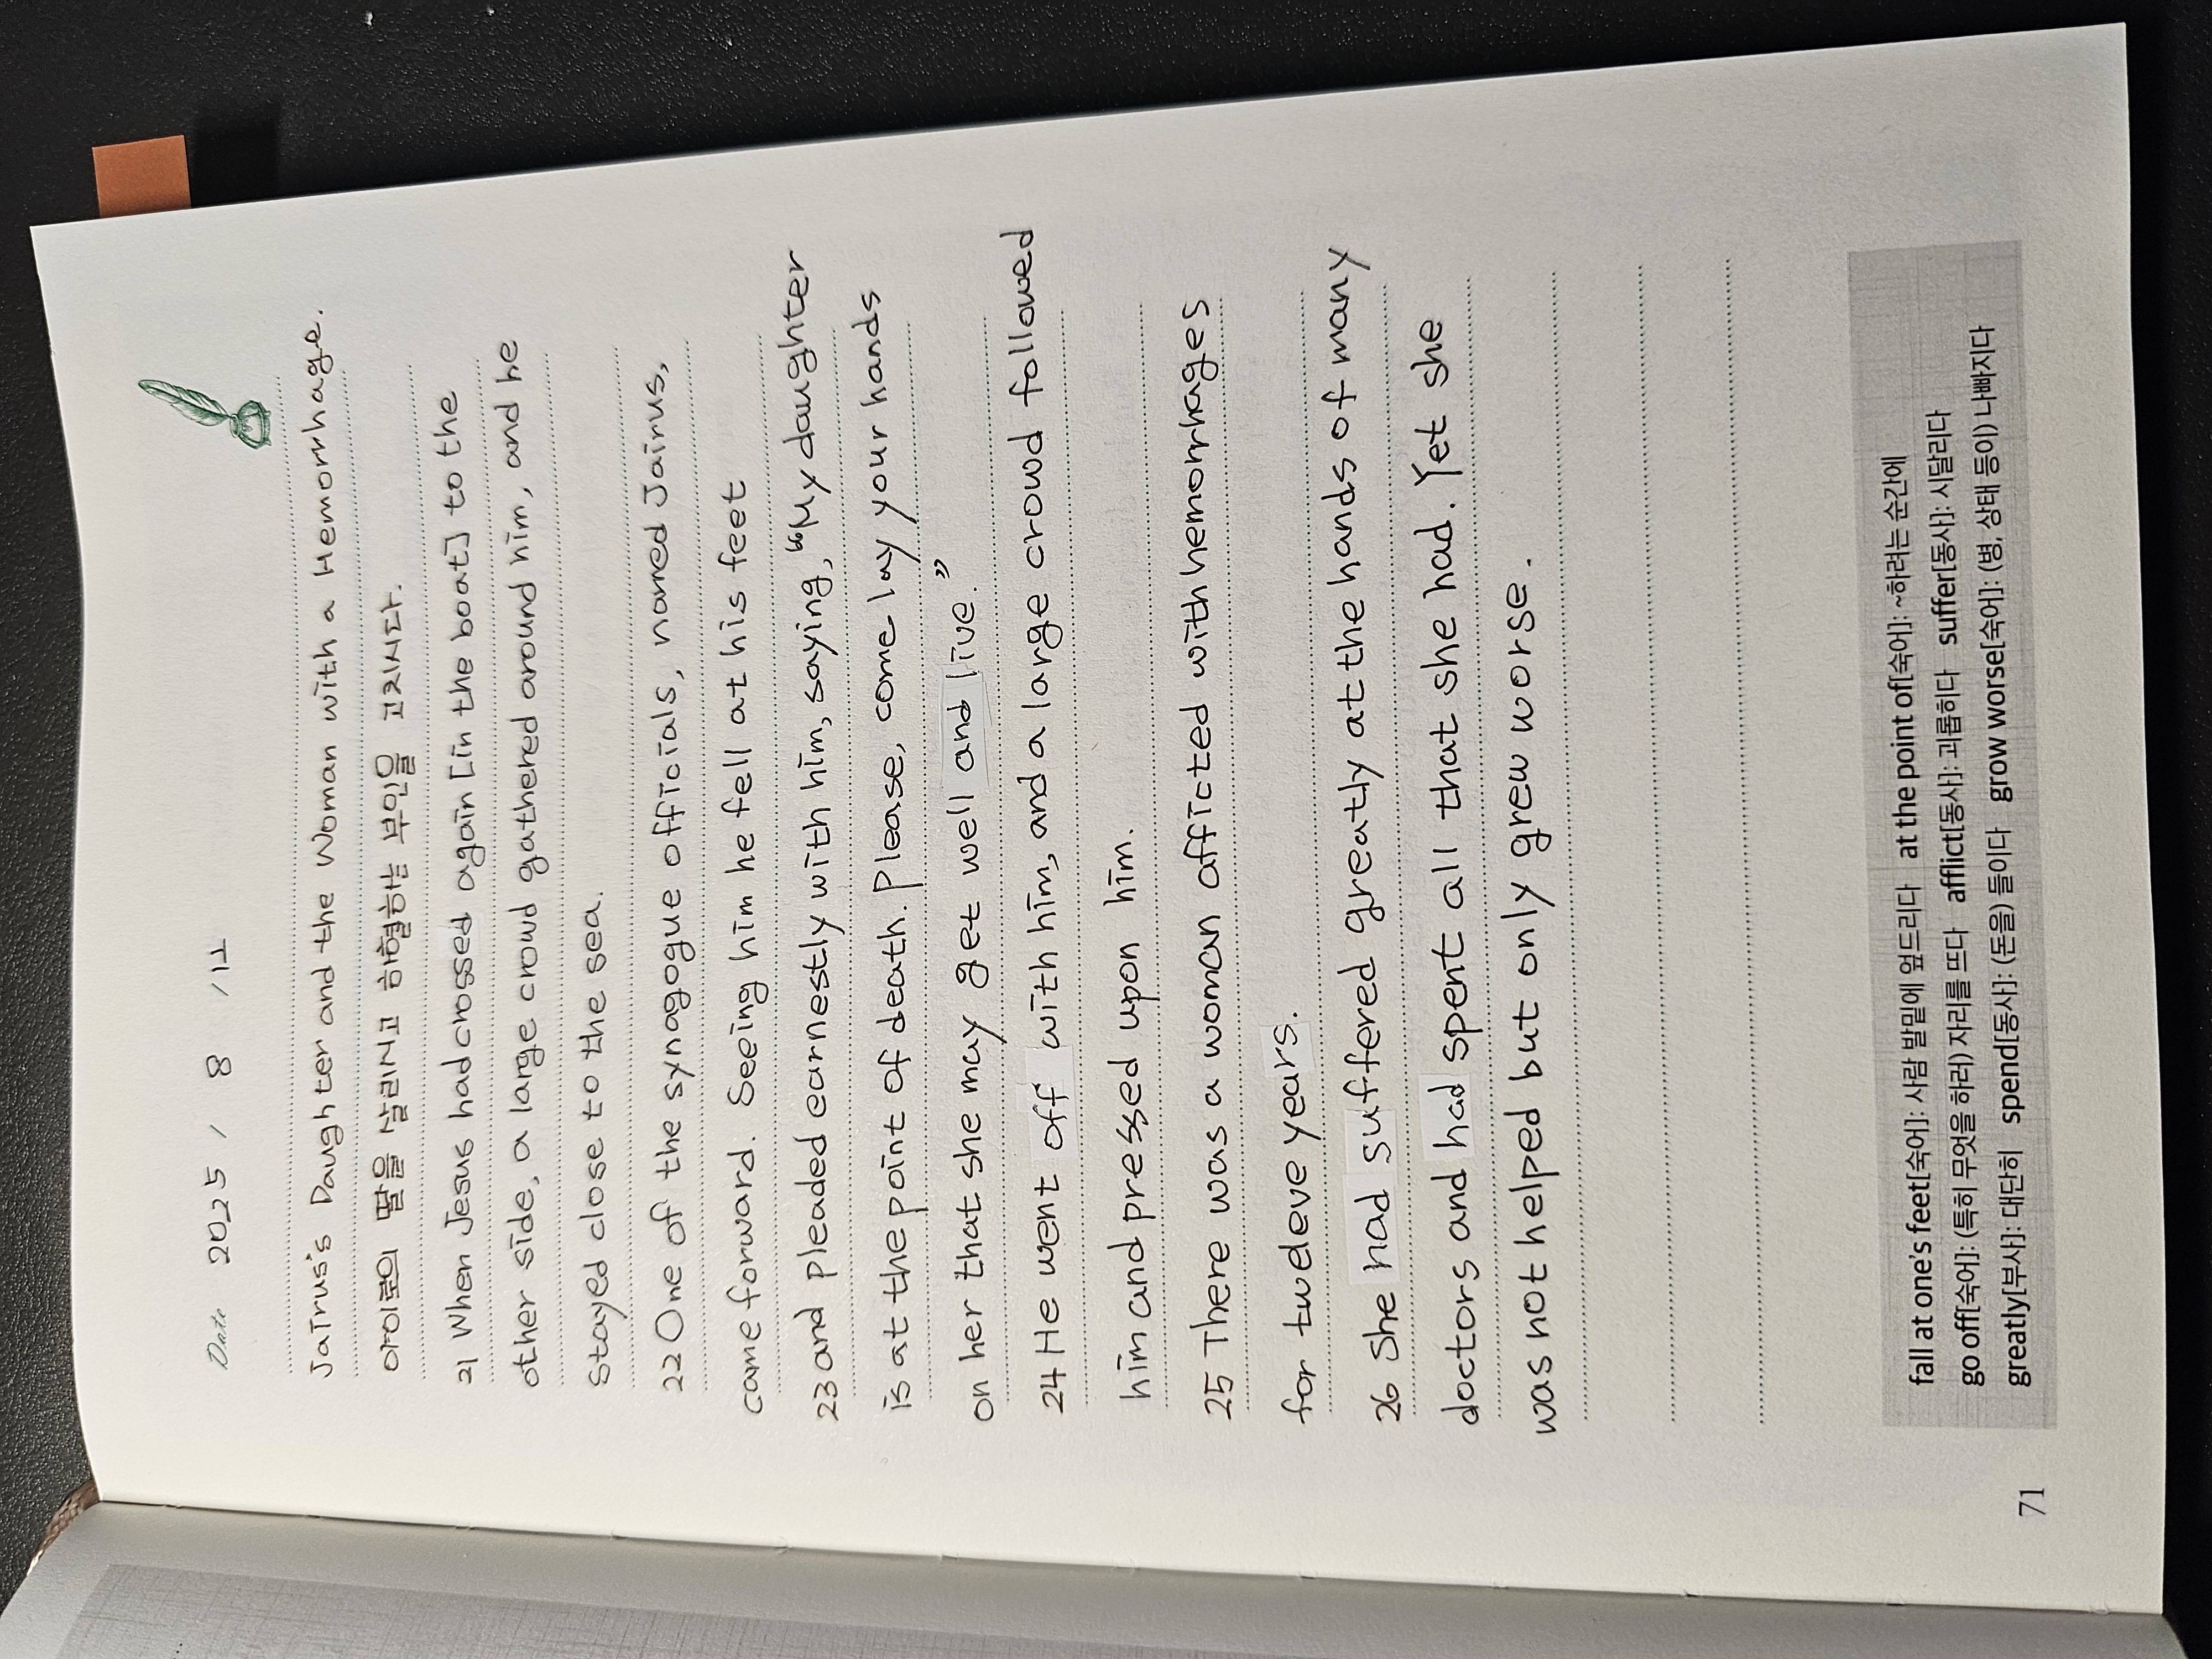 Date 2025 / 8 / 12
Jairus's Daughter and the Woman with a Hemorrhage.
야이로의 딸을 살리시고 하혈하는 부인을 고치시다.
21 When Jesus had crossed again [in the boat] to the
other side, a large crowd gathered around him, and he
stayed close to the sea.
22 One of the synagogue officials, named Jairus,
came forward. Seeing him he fell at his feet
23 and pleaded earnestly with him, saying, "My daughter
is at the point of death. Please, come lay your hands
on her that she may get well and live."
24 He went off with him, and a large crowd followed
him and pressed upon him.
25 There was a woman afficted with hemorrhages
for twdeve years.
26 She had suffered greatly at the hands of many
doctors and had spent all that she had. Yet she
was not helped but only grew worse.
fall at one's feet[숙어]: 사람 발밑에 엎드리다 at the point of[숙어]: ~하려는 순간에
go off[숙어]: (특히 무엇을 하러) 자리를 뜨다 afflict[동사]: 괴롭히다 suffer[동사]: 시달리다
greatly[부사]: 대단히 spend[동사]: (돈을) 들이다 grow worse[숙어]: (병, 상태 등이) 나빠지다
71